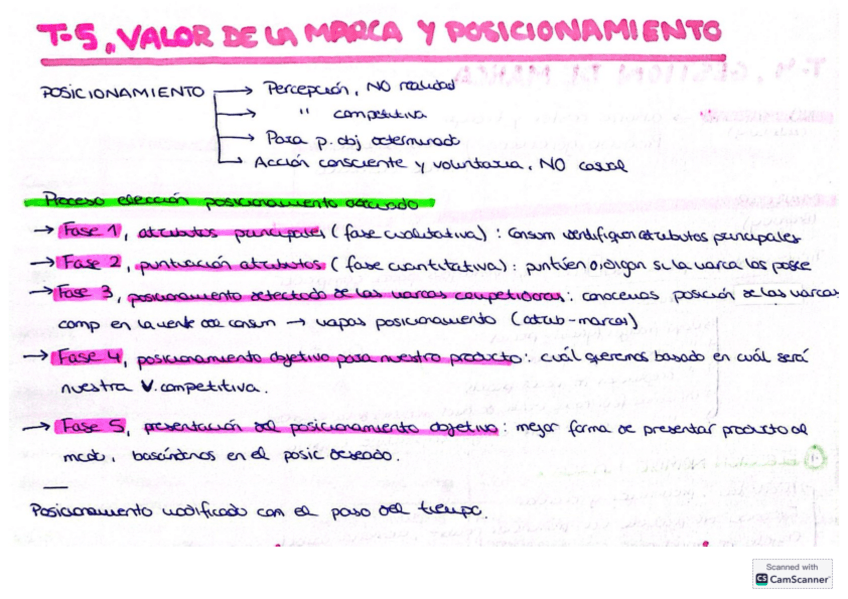 T-5. VALOR DE LA MARCA Y POSICIONAMIENTO
POSICIONAMIENTO → Percepción, NO realidad
→ " competitiva
→ Para p. obj determinado
→ Acción consciente y voluntaria, NO casual
Proceso elección posicionamiento adecuado
→ Fase 1, atributos principales (fase cualitativa): consum identifiquen atributos principales
→ Fase 2, puntuación atributos (fase cuantitativa): puntúen o digan si la marca los posee
→ Fase 3, posicionamiento detectado de las marcas competidoras: conocemos posición de las marcas
comp en la mente del consum → mapas posicionamiento (atrib-marcas)
→ Fase 4, posicionamiento objetivo para nuestro producto: cuál queremos basado en cuál será
nuestra V. competitiva.
→ Fase 5, presentación del posicionamiento objetivo: mejor forma de presentar producto al
mcdo, basándonos en el posic deseado.
Posicionamiento modificado con el paso del tiempo.
Scanned with
CS CamScanner